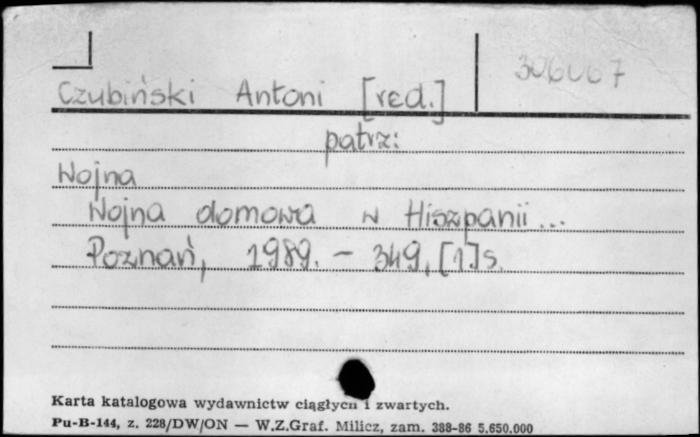 306067
Czubiński Antoni [red.]
patrz:
Wojna
Wojna domowa w Hiszpanii...
Poznań, 1989. – 349, [1] s.
Karta katalogowa wydawnictw ciągłych i zwartych.
Pu-B-144, z. 228/DW/ON — W.Z.Graf. Milicz, zam. 388-86 5.650.000